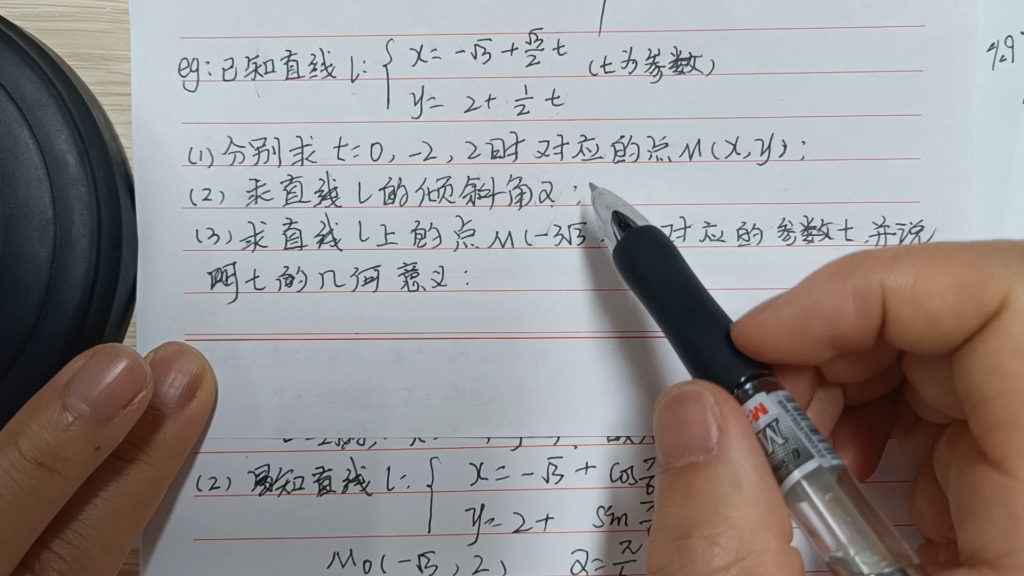 eg: 已知直线 l: { x = -√3 + √3/2 t
y = 2 + 1/2 t
(t为参数)
(1) 分别求 t=0, -2, 2时对应的点M(x,y);
(2) 求直线l的倾斜角α;
(3) 求直线l上的点M(-3√3 对应的参数t 并说
明t的几何意义:
(2) 知直线 l: { x = -√3 + cos
y = 2 + sin
M0(-√3, 2) α=